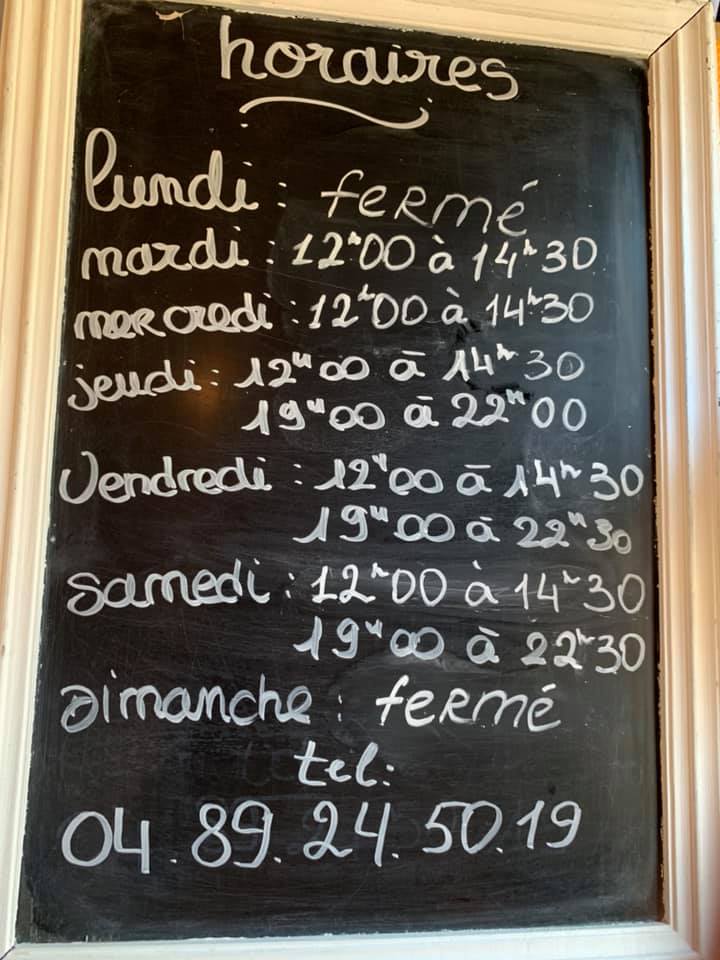 horaires
lundi : fermé
mardi : 12h00 à 14h30
mercredi : 12h00 à 14h30
jeudi : 12h00 à 14h30
19h00 à 22h00
Vendredi : 12h00 à 14h30
19h00 à 22h30
samedi : 12h00 à 14h30
19h00 à 22h30
Dimanche : fermé
tel:
04.89.24.50.19